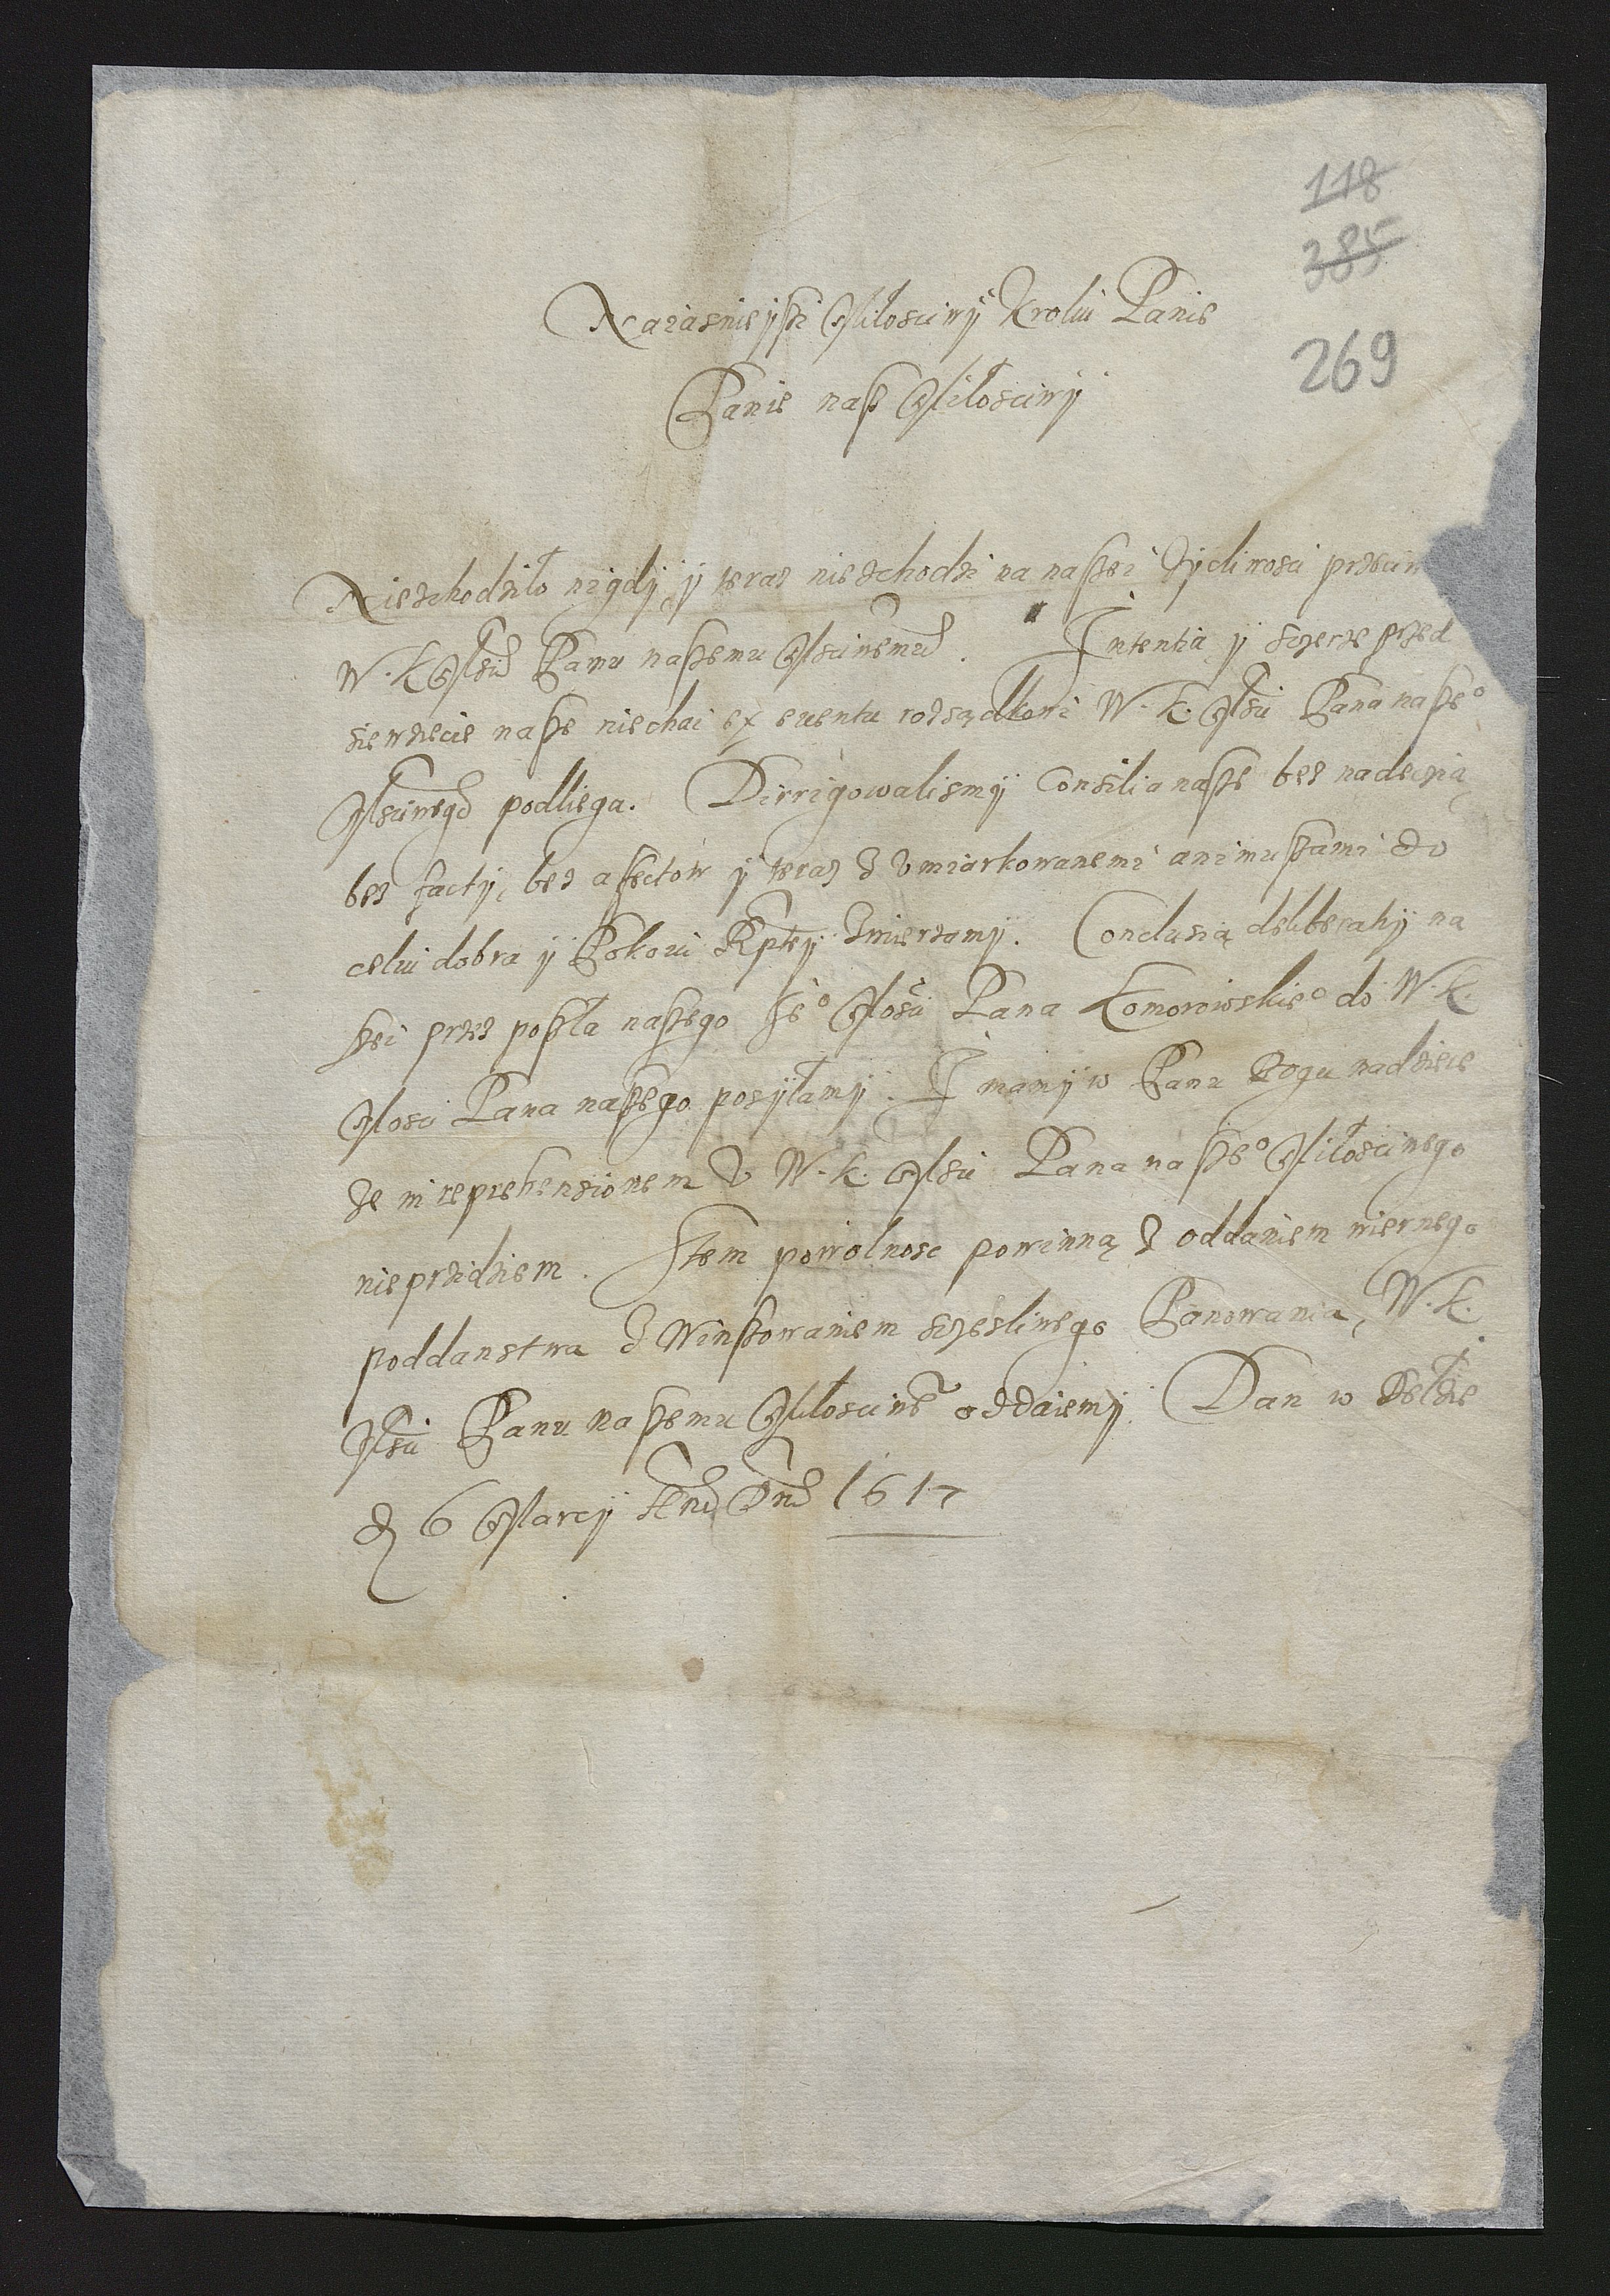 118
385
269
Naiasnieyszi Miłosciwÿ Krolu Panie
Panie nasz Miłosciwÿ
Niezchodziło nigdÿ, ÿ teraz niezchodzi na naszei Zÿcliwosci przeciw
W. K Msci Panu naszemu Msciwemu. Intentia ÿ szcerze przed
siewziecie nasze niechai ex euentu rozsądkowi W. K. Msci Pana naszeᵒ
Msciwego podliega. Dirrigowalismÿ Consilia nasze bez nadecia
bez factÿ, bez afectow ÿ teraz z vmiarkowanemi animuszami do
celiu dobra ÿ Pokoiu Rptey Zmierzamÿ. Conclusią deliberatÿ na
szei przez posla naszego Jeᵒ Mosci Pana Komorowskieᵒ do W. K.
Mosci Pana naszego posÿlamÿ. I mamÿ w Panu Bogu nadzieie
ze in reprehensionem v W. K. Msci Pana naszeᵒ Miłosciwego
nieprzidziem. Item powolnosc powinną z oddaniem wiernego
poddanstwa z Winszowaniem sczesliwego Panowania, W. K.
Msci Panu naszemu Miłosciwe oddaiemÿ. Dan w Bełzie
D 6 Marcÿ Anno Dni 1617